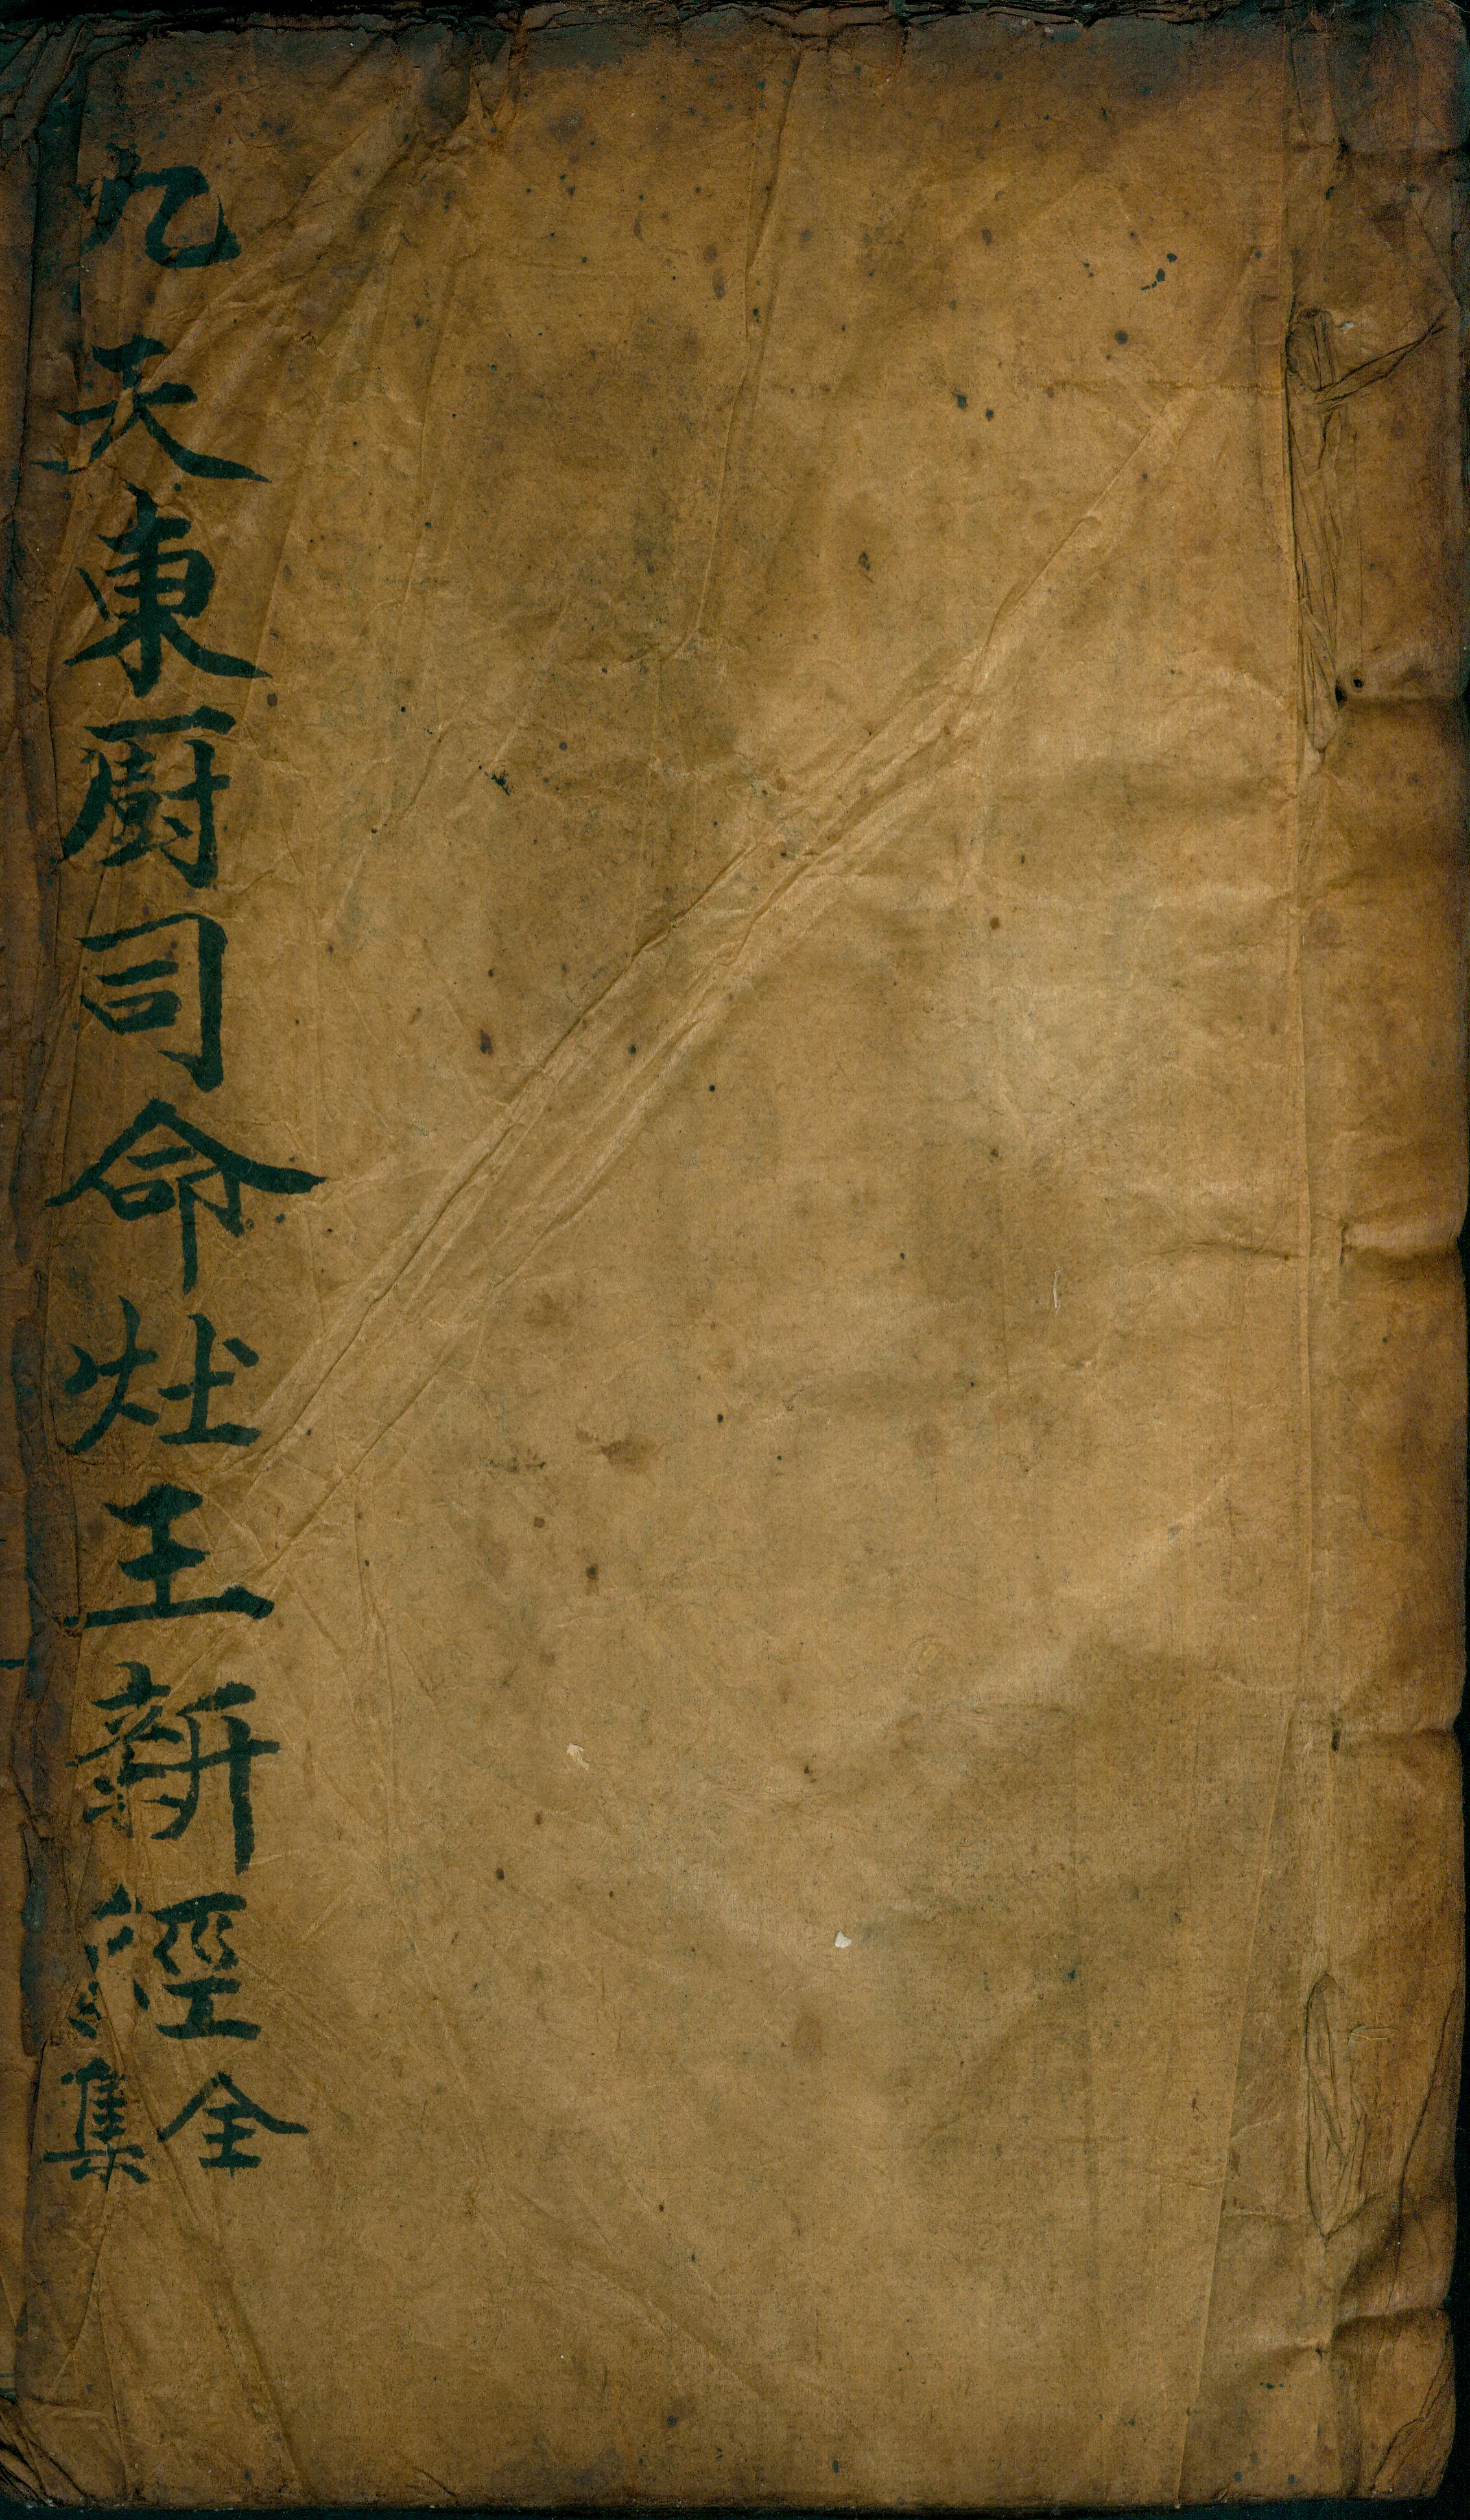 九天東厨司命灶王新經全集